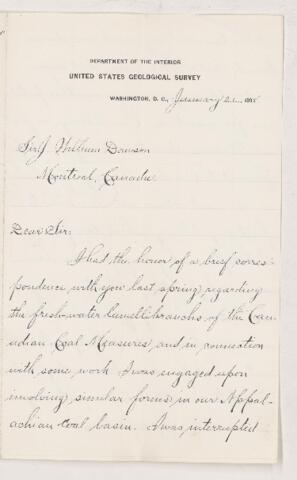 DEPARTMENT OF THE INTERIOR
UNITED STATES GEOLOGICAL SURVEY
WASHINGTON, D. C., January
Sir J. William Dawson
Montreal, Canada.
Dear Sir:
I had the honor of a brief corres-
pondence with you last spring, regarding
the fresh-water lamellibranchs of the Can-
adian Coal Measures, and in connection
with some work I was engaged upon
involving similar forms in our Appal-
achian Coal basin. I was interrupted